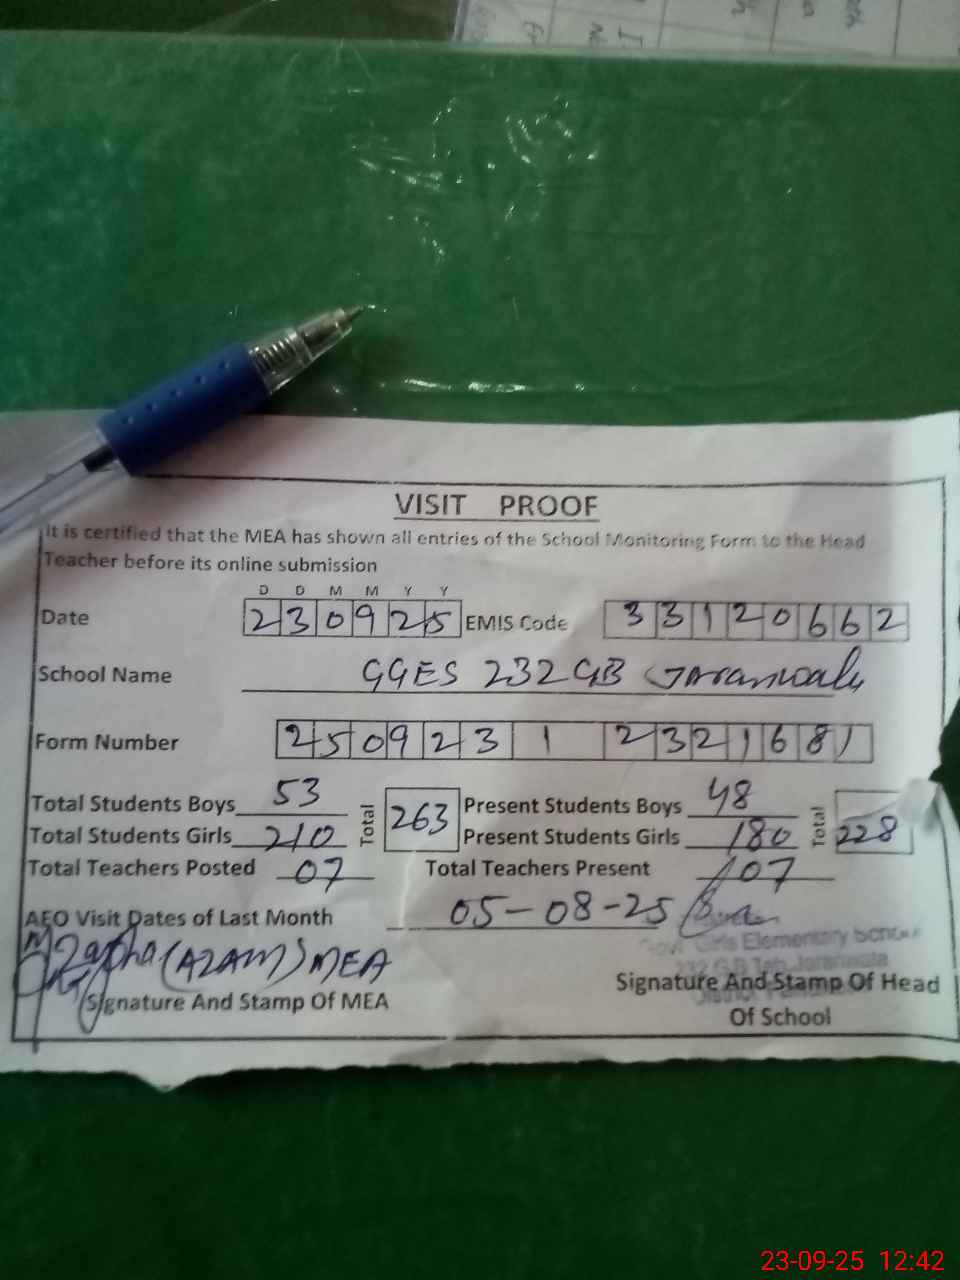 VISIT PROOF
It is certified that the MEA has shown all entries of the School Monitoring Form to the Head
Teacher before its online submission
D D M M Y Y
Date 230925 EMIS Code 33120662
School Name GGES 232 GB Jaranwala
Form Number 250923 1 2321681
Total Students Boys 53 Total 263 Present Students Boys 48 Total 228
Total Students Girls 210 Present Students Girls 180
Total Teachers Posted 07 Total Teachers Present 07
AEO Visit Dates of Last Month 05-08-25
Govt Girls Elementary School
(AZAM) MEA
232 G.B Teh Jaranwala
Signature And Stamp Of MEA Signature And Stamp Of Head
Of School
23-09-25 12:42